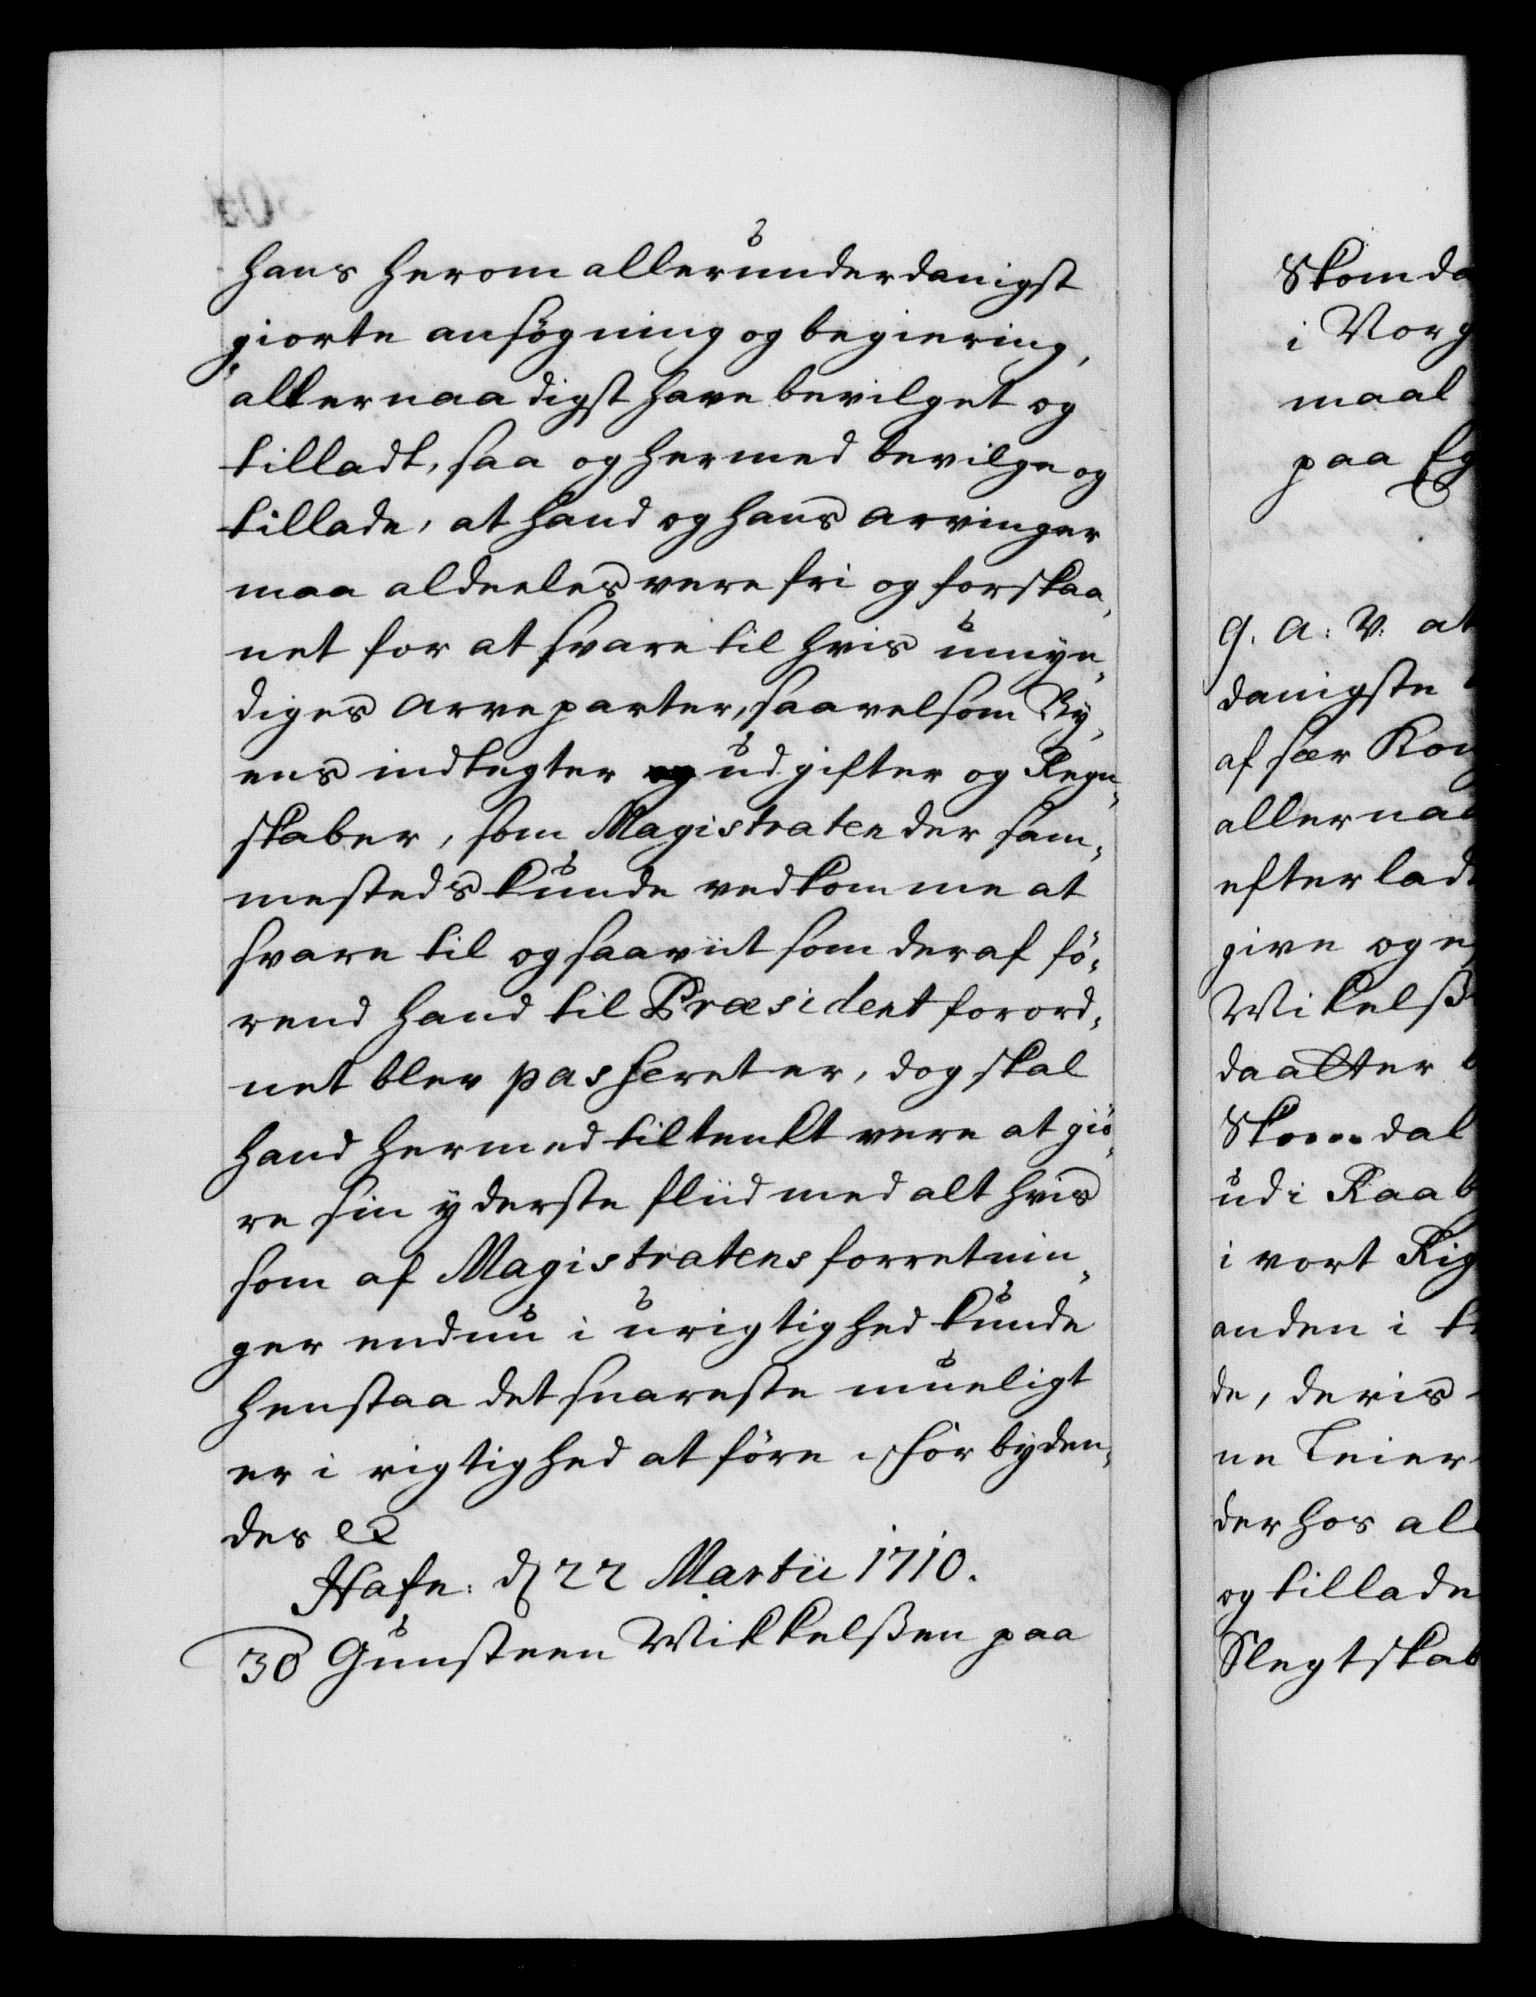 hans herom allerunderdanigst
giorte ansøgning og begiering,
allernaadigst have bevilget og
tilladt, saa og hermed bevilge og
tillade, at hand og hans arvinger
maa aldeeles vere fri og forskaa,
net for at svare til hvis umyn,
diges arve parter, saavelsom By,
ens indtegter udgifter og Regn,
skaber, som Magistraten der sam,
mesteds kunde vedkomme at
svare til og saaviit som deraf fö,
rend hand til Præsident forord,
net blev passeret er, dog skal
hand hermed tiltenkt vere at giö,
re sin yderste fliid med alt hvis
som af Magistratens forretnin,
ger endnu i urigtighed kunde
henstaa det snareste mueligt
er i rigtighed at före, Forbyden,
des &
Hafn: d 22 Martii 1710.
30 Gunsteen Mikkelßen paa
Skomda
i Norg
maal
paa Eg
G. A: V: at
danigste
af sær Kon
allernaa
efterlad
give og e
Mikelß
daatter
Skomdal
udi Raab
i vort Rig
anden i
de, deris
ne Leier
derhos al
og tillade
Slegtskab